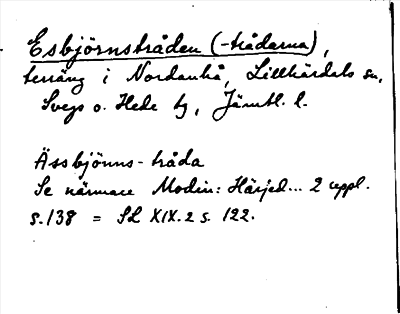 Esbjörnstråden (-trådarna),
terräng i Nordanhå, Lillhärdals sn,
Svegs o. Hede tg, Jämtl. l.
Ässbjönns-tråda
Se närmare Modin: Härjed... 2 uppl.
s.138 = SL XIX.2 s. 122.